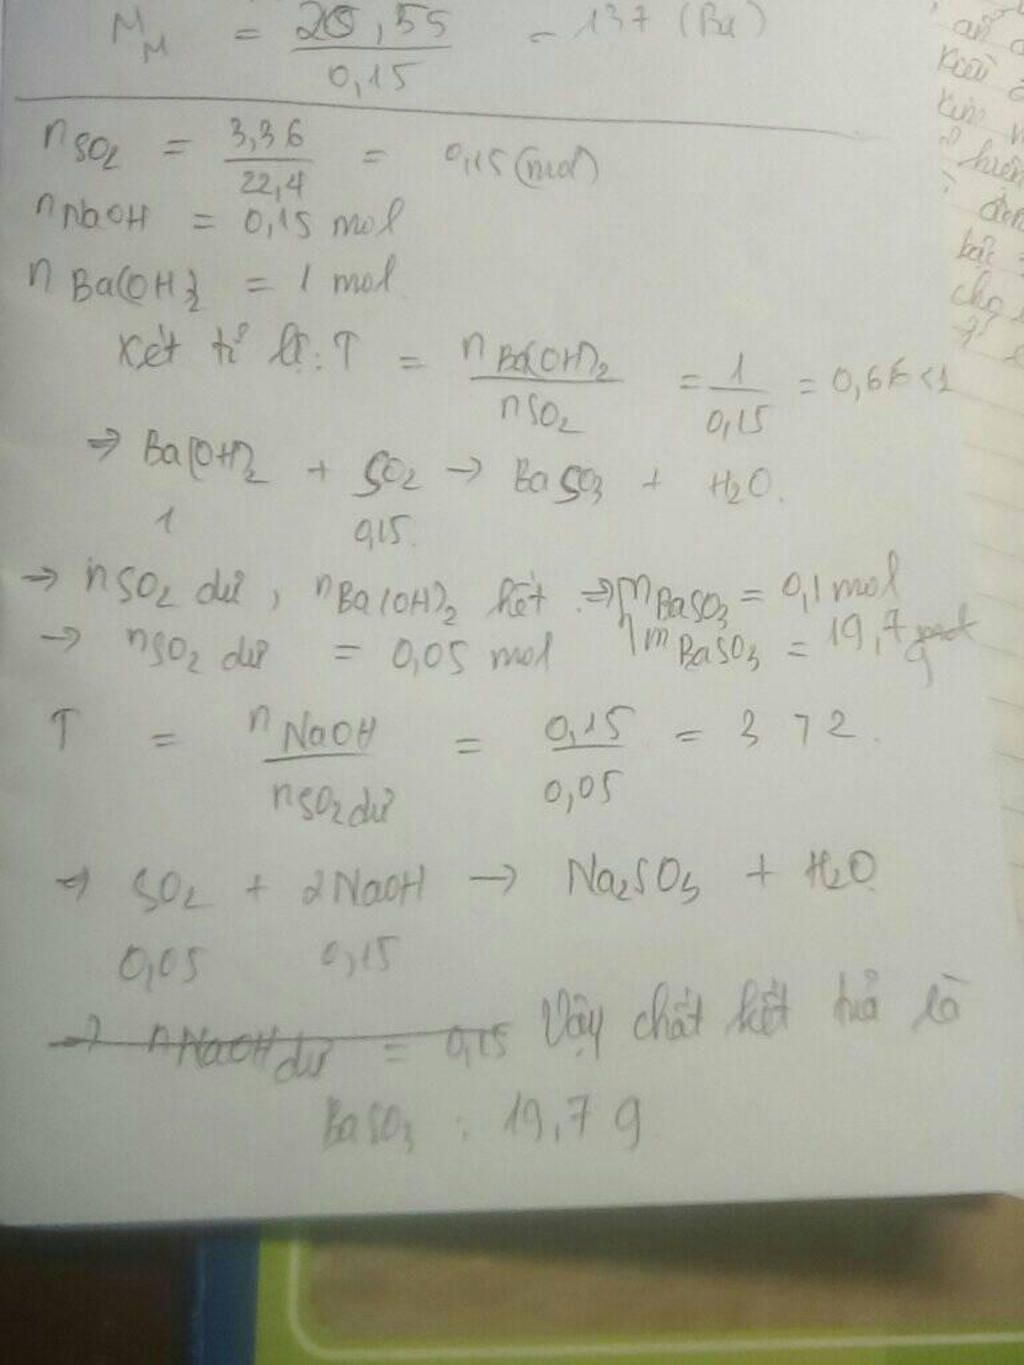 M_M = 20,55 / 0,15 = 137 (Ba)
n SO2 = 3,36 / 22,4 = 0,15 (mol)
n NaOH = 0,15 mol
n Ba(OH)2 = 1 mol
Xét tỉ lệ: T = n Ba(OH)2 / n SO2 = 1 / 0,15 = 0,66 < 1
⇒ Ba(OH)2 + SO2 → BaSO3 + H2O.
1 0,15.
⇒ n SO2 dư, n Ba(OH)2 hết ⇒ n BaSO3 = 0,1 mol
→ n SO2 dư = 0,05 mol m BaSO3 = 19,7 g
T = n NaOH / n SO2 dư = 0,15 / 0,05 = 3 > 2.
⇒ SO2 + 2NaOH → Na2SO3 + H2O
0,05 0,15
→ n NaOH dư = 0,15 Vậy chất kết tủa là
BaSO3 : 19,7 g